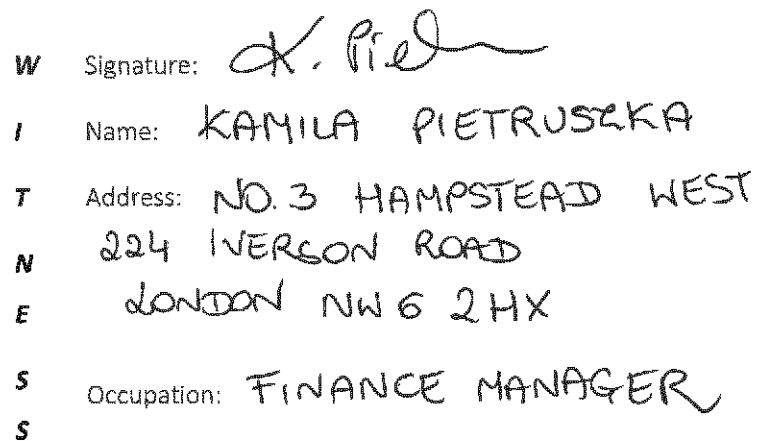 W Signature: K. Pie
I Name: KAMILA PIETRUSZKA
T Address: NO. 3 HAMPSTEAD WEST
N 224 IVERSON ROAD
E LONDON NW6 2HX
S Occupation: FINANCE MANAGER
S